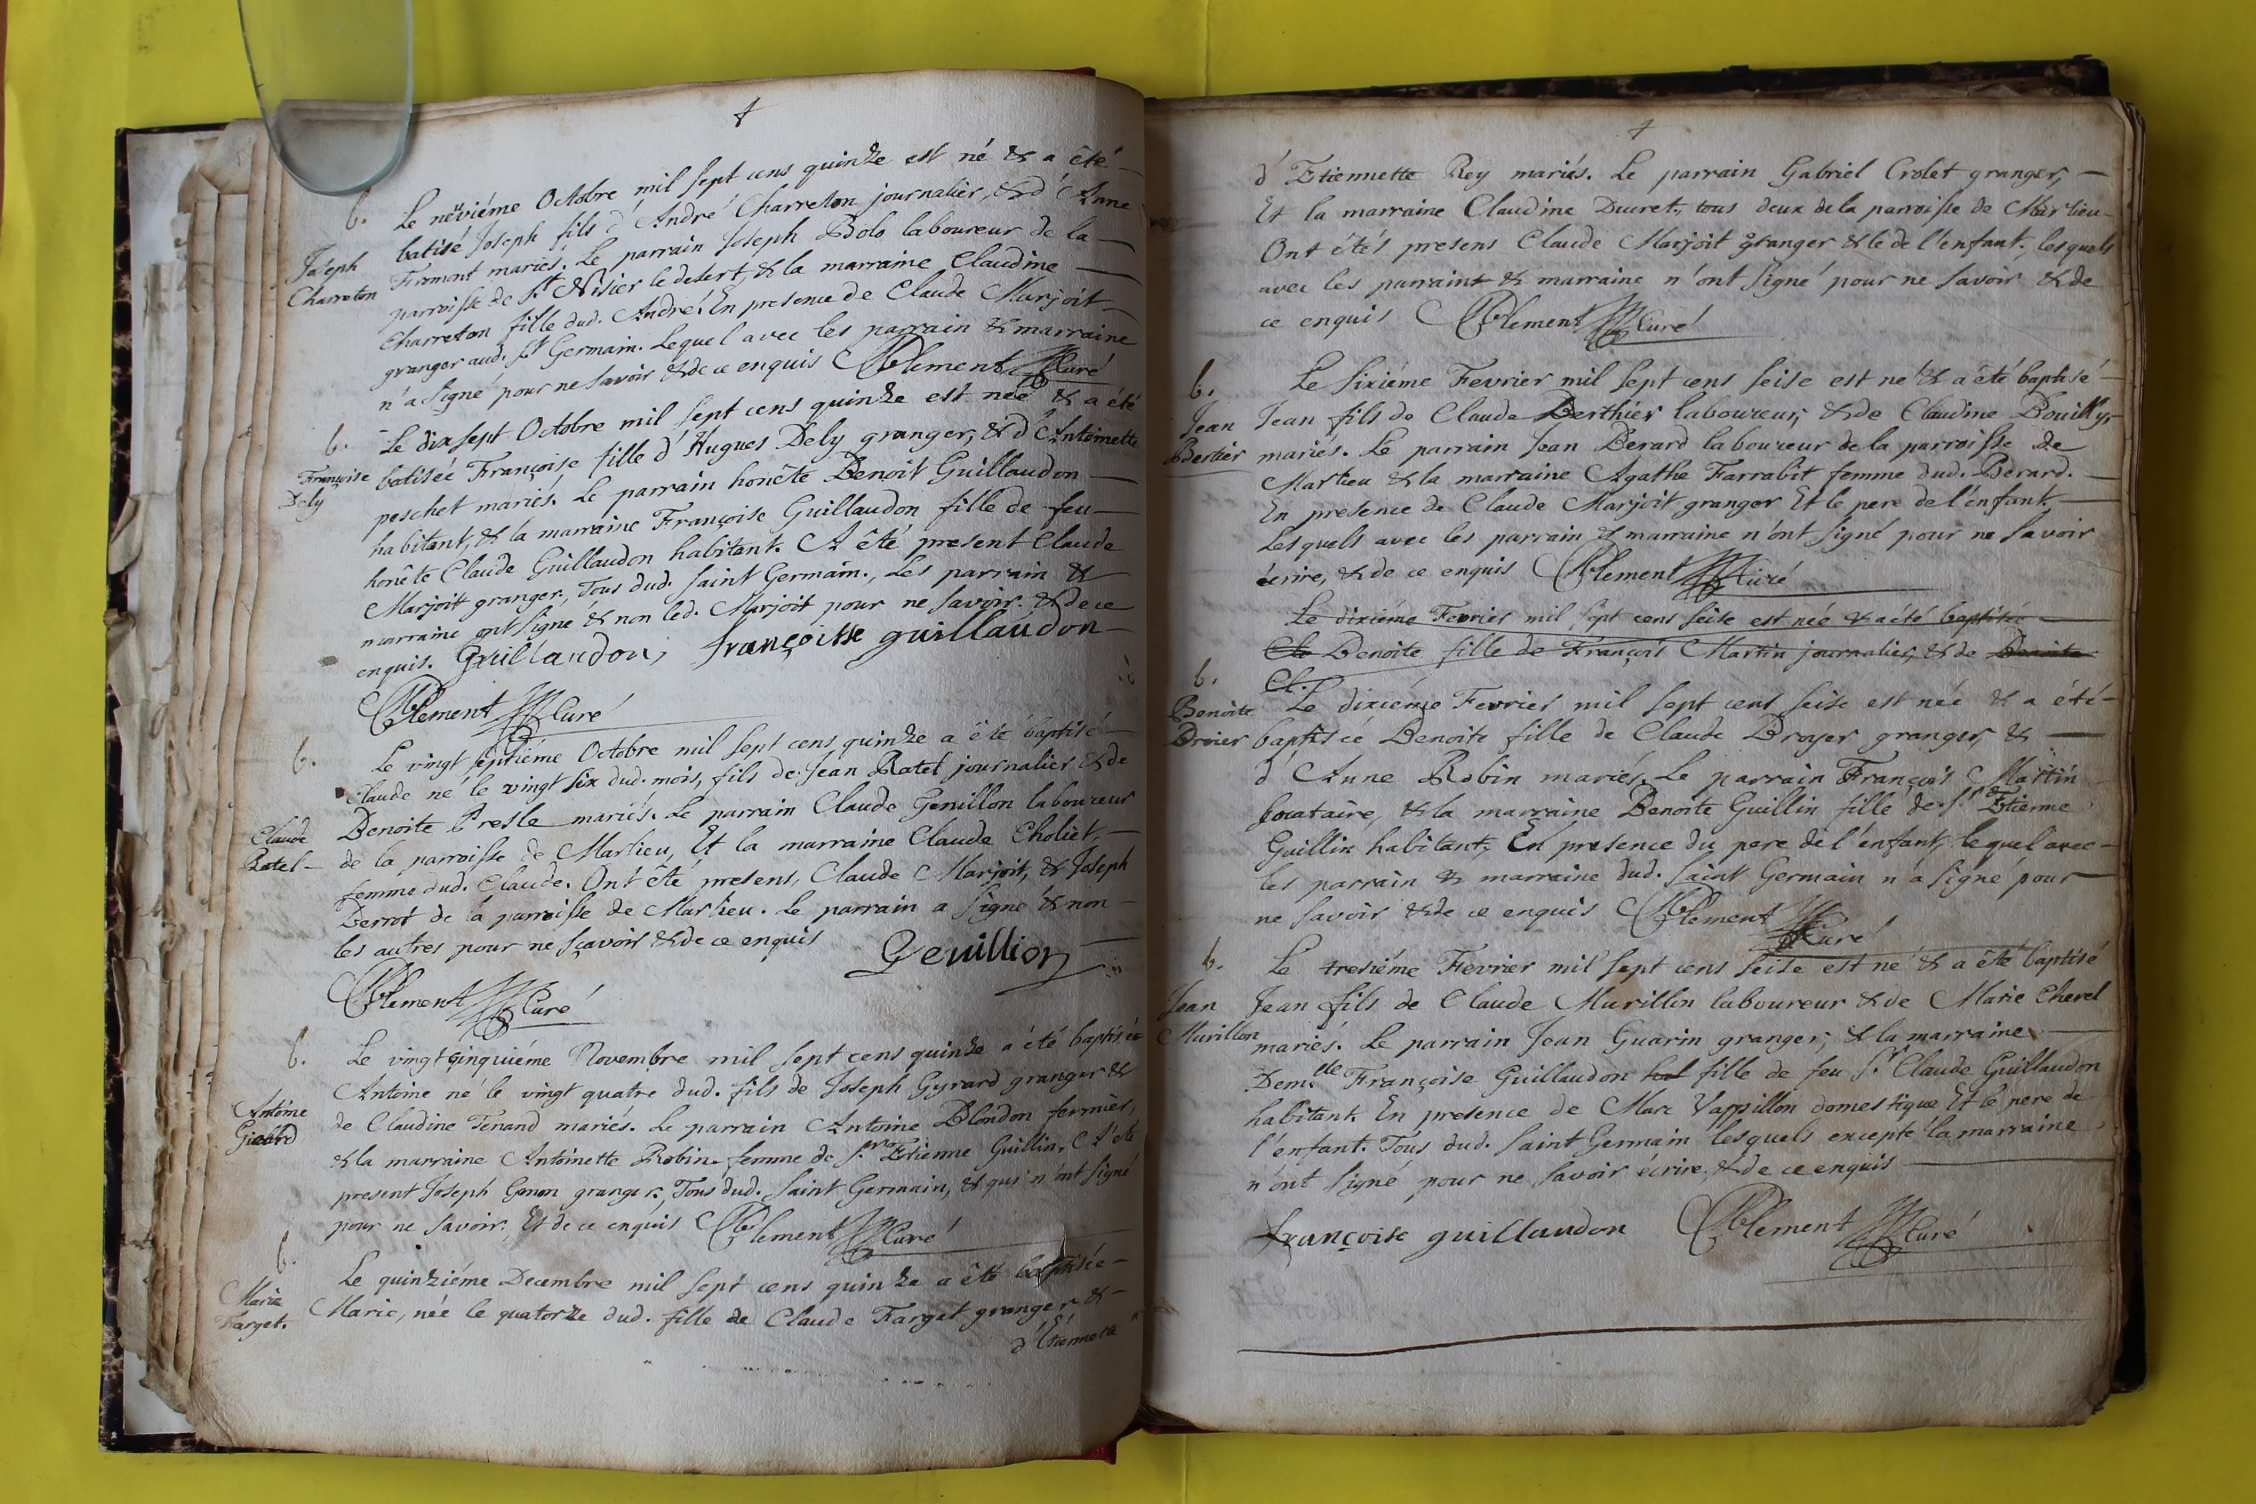 b.
Joseph
Charreton
Le neüviéme Octobre mil sept cens quinze est né & a êté
batisé Joseph fils d'André Charreton journalier, & d'Anne
Fromont mariés. Le parrain Joseph Bolo laboureur de la
parroisse de St. Nisier le desert, & la marraine Claudine
Charreton fille dud. André. En presence de Claude Marjoit
granger aud. St Germain. Lequel avec les parrain & marraine
n'a signé pour ne savoir & de ce enquis Clement Curé
b.
Françoise
Dely
Le dixsept Octobre mil sept cens quinze est née & a été
batisée Françoise fille d'Hugues Dely granger, & d'Antoinette
peschet mariés. Le parrain honête Benoit Guillaudon
habitant, & la marraine Françoise Guillaudon fille de feu
honête Claude Guillaudon habitant. A êté present Claude
Marjoit granger, Tous dud. saint Germain., Les parrain &
marraine ont signé & non led. Marjoit pour ne savoir. & de ce
enquis. Guillaudon, françoisse guillaudon
Clement Curé
b.
Claude
Ratel
Le vingt septiéme Octobre mil sept cens quinze a êté baptisé
Claude né le vingt six dud. mois, fils de Jean Ratel journalier & de
Benoite Presle mariés. Le parrain Claude Genillon laboureur
de la parroisse de Marlieu, Et la marraine Claude Choliet,
femme dud. Claude. Ont été presens, Claude Marjoit, & Joseph
Derrot de la parroisse de Marlieu. Le parrain a signé & non
les autres pour ne sçavoir & de ce enquis Genillion
Clement Curé
b.
Antoine
Girard
Le vingtcinquiéme Novembre mil sept cens quinze a été baptisée
Antoine né le vingt quatre dud. fils de Joseph Gyrard granger &
de Claudine Tenand mariés. Le parrain Antoine Blondon fermier,
& la marraine Antoinette Robin femme de Sr. Etienne Guillin. A été
present Joseph Gonon granger. Tous dud. Saint Germain, & qui n'ont signé
pour ne savoir. Et de ce enquis Clement Curé
b.
Marie
Farget.
Le quinziéme Decembre mil sept cens quinze a êté baptisée
Marie, née le quatorze dud. fille de Claude Farget granger &
d'Etiennette
d'Etiennette Rey mariés. Le parrain Gabriel Crolet granger,
Et la marraine Claudine Ducret, tous deux de la parroisse de Marlieu
Ont étés presens Claude Marjoit granger & le de l'enfant, lesquels
avec les parraint & marraine n'ont signé pour ne savoir & de
ce enquis Clement Curé
b.
Jean
Bertier
Le sixiéme Fevrier mil sept cens seise est né & a été baptisé
Jean fils de Claude Berthier laboureur, & de Claudine Bouilly
mariés. Le parrain Jean Berard laboureur de la parroisse de
Marlieu & la marraine Agathe Farrabit femme dud. Berard.
En presence de Claude Marjoit granger Et le pere de l'enfant
Lesquels avec les parrain & marraine n'ont signé pour ne savoir
écrire, & de ce enquis Clement Curé
Le dixiéme Fevrier mil sept cens seise est née & a été baptisée
Cla Benoite fille de François Martin journalier, & de Benoite
Cl.
b.
Benoite
Broier
Le dixiéme Fevrier mil sept cens seise est née & a été
baptisée Benoite fille de Claude Broyer granger, &
d'Anne Robin mariés. Le parrain François Martin
locataire, & la marraine Benoite Guillin fille de Sr. Etienne
Guillin habitant, En presence du pere de l'enfant, lequel avec
les parrain & marraine dud. Saint Germain n'a signé pour
ne savoir & de ce enquis Clement Curé
b.
Jean
Murillon
Le tresiéme Fevrier mil sept cens seise est né & a êté baptisé
Jean fils de Claude Murillon laboureur & de Marie Chevel
mariés. Le parrain Jean Guarin granger, & la marraine
Dem.lle Françoise Guillaudon hal fille de feu Sr. Claude Guillaudon
habitant. En presence de Marc Vappillon domestique Et le pere de
l'enfant. Tous dud. Saint Germain lesquels excepté la marraine
n'ont signé pour ne savoir écrire, & de ce enquis
françoise guillaudon Clement Curé